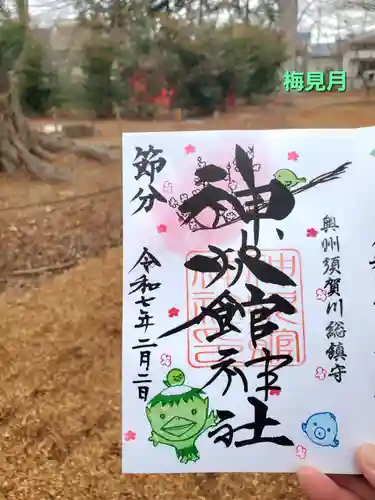 梅見月
奥州須賀川総鎮守
神炊館神社
節分
令和七年二月二日